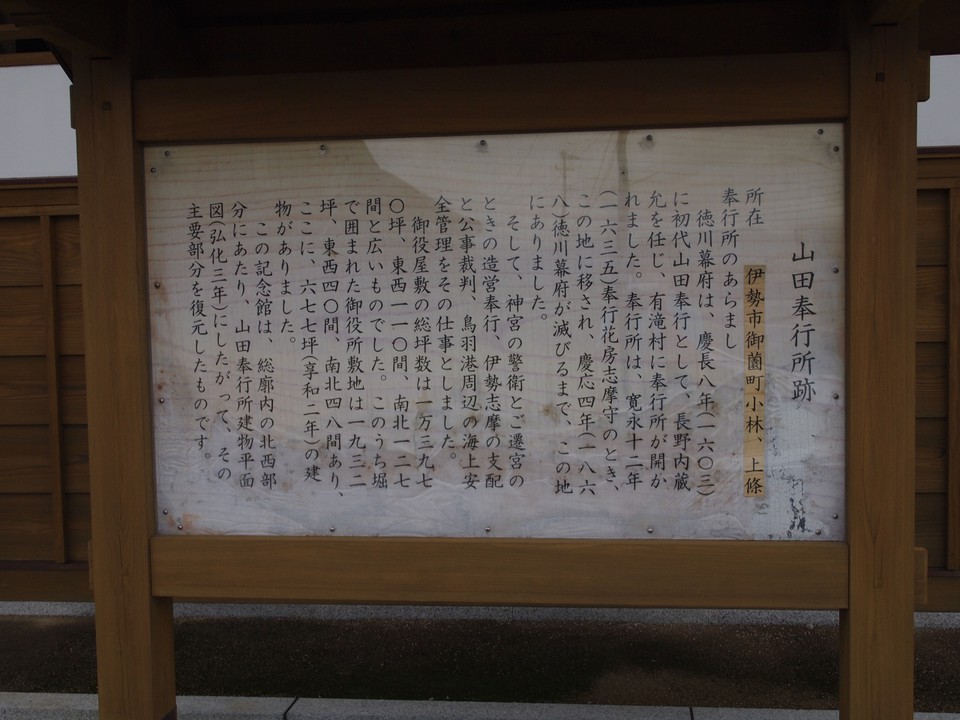 山田奉行所跡
所在　伊勢市御薗町小林、上條
奉行所のあらまし
徳川幕府は、慶長八年(一六〇三)
に初代山田奉行として、長野内蔵
允を任じ、有滝村に奉行所が開か
れました。奉行所は、寛永十二年
(一六三五)奉行花房志摩守のとき、
この地に移され、慶応四年(一八六
八)徳川幕府が滅びるまで、この地
にありました。
そして、神宮の警衛とご遷宮の
ときの造営奉行、伊勢志摩の支配
と公事裁判、鳥羽港周辺の海上安
全管理をその仕事としました。
御役屋敷の総坪数は一万三九七
〇坪、東西一一〇間、南北一二七
間と広いものでした。このうち堀
で囲まれた御役所敷地は一九三二
坪、東西四〇間、南北四八間あり、
ここに、六七七坪(享和二年)の建
物がありました。
この記念館は、総廓内の北西部
分にあたり、山田奉行所建物平面
図(弘化三年)にしたがって、その
主要部分を復元したものです。